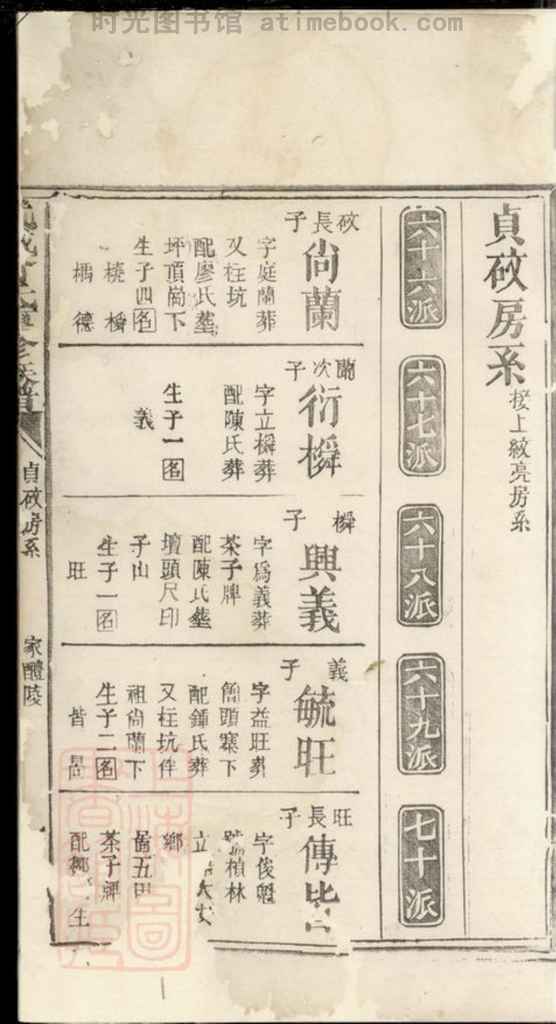 时光图书馆 atimebook.com
貞砇房系
接上紋亮房系
六十六派
六十七派
六十八派
六十九派
七十派
砇長子
尙蘭
字庭蘭葬
又枉坑
配廖氏塟
坪頂崗下
生子四名
橈橓
德
蘭次子
衍橓
字立橓葬
配陳氏葬
生子一名
義
橓子
興義
字爲義葬
茶子牌
配陳氏塟
壇頭尺印
子山
生子一名
旺
義子
毓旺
字益旺葬
簡頭寨下
配鍾氏葬
又枉坑伴
祖尙蘭下
生子二名
皆
旺長子
傳皆
字俊魁
植林
立
鄉
五甲
茶子牌
配鄭
生
貞砇房系
家醴陵